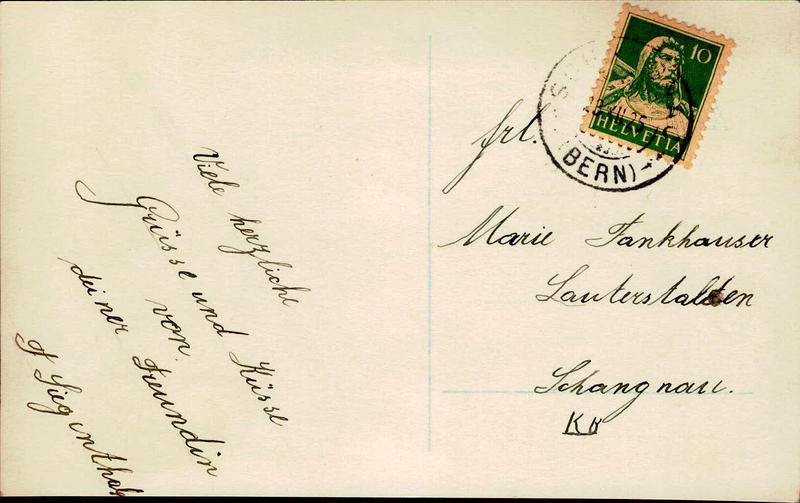 Viele herzliche
Grüsse und Küsse
von
deiner Freundin
10
HELVETIA
(BERN)
frl.
Marie Fankhauser
Lauterstalden
Schangnau.